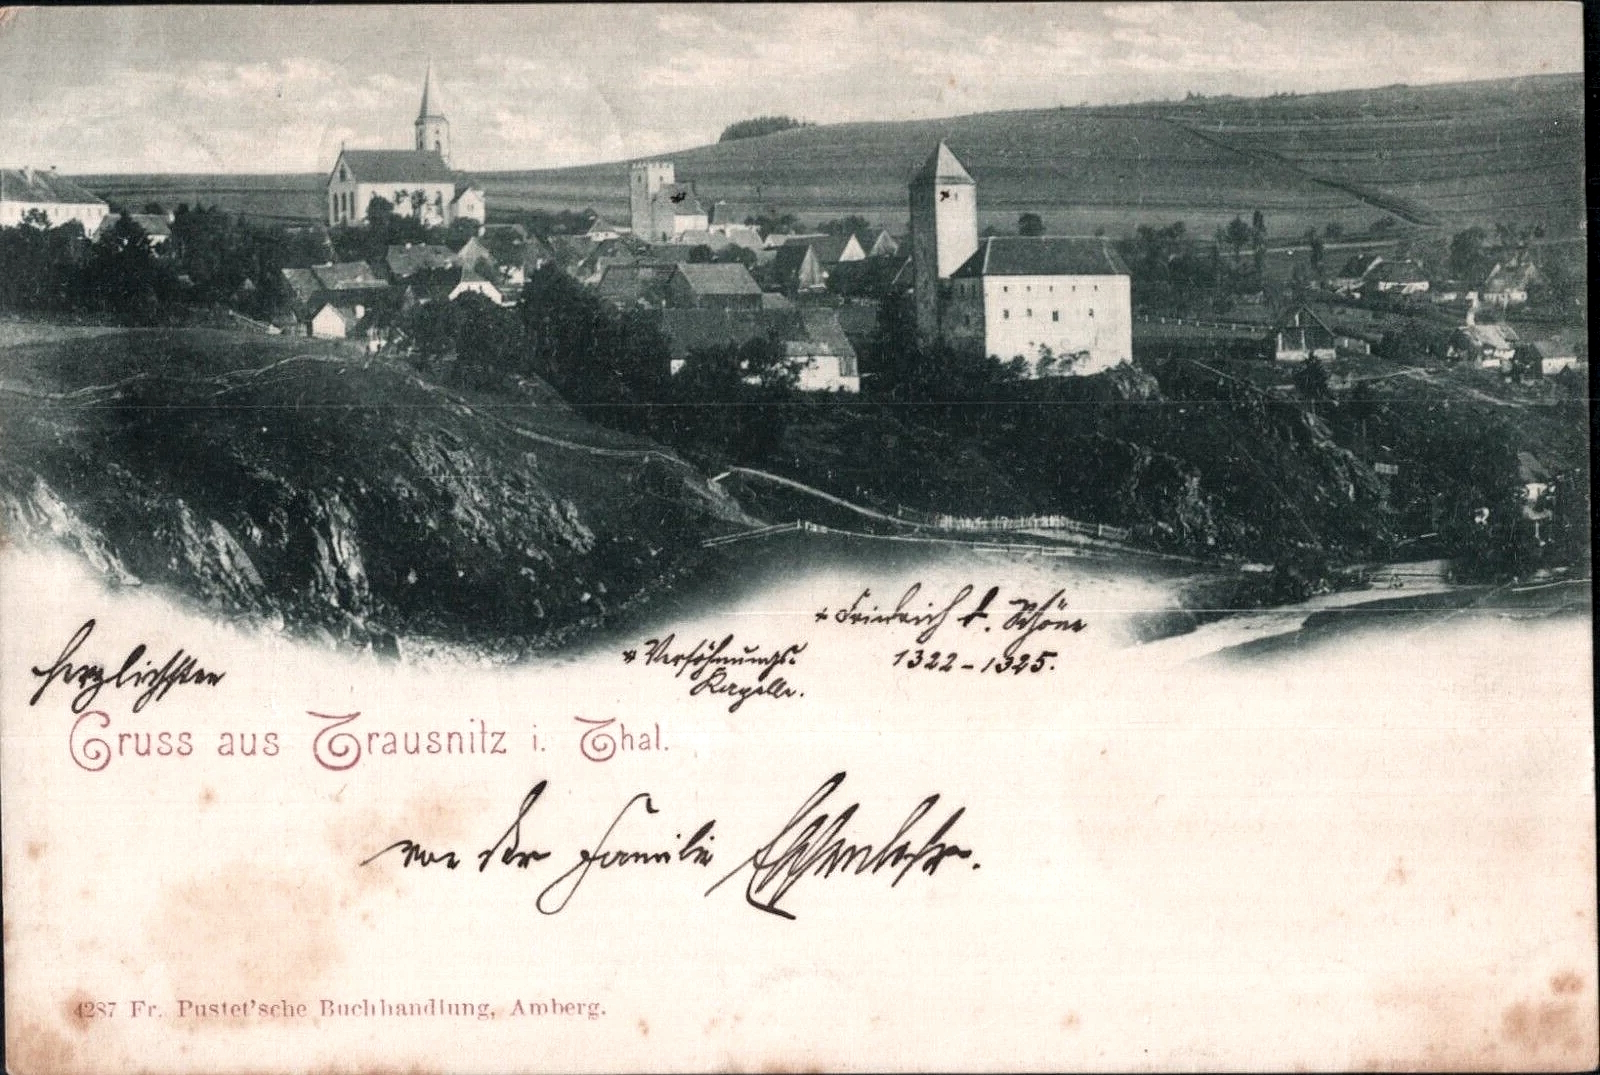 + Friedrich d. Schöne
1322-1325.
* Versöhnungs-
Kapelle.
herzlichsten
Gruss aus Trausnitz i. Thal.
von der Familie
4287 Fr. Pustet'sche Buchhandlung, Amberg.